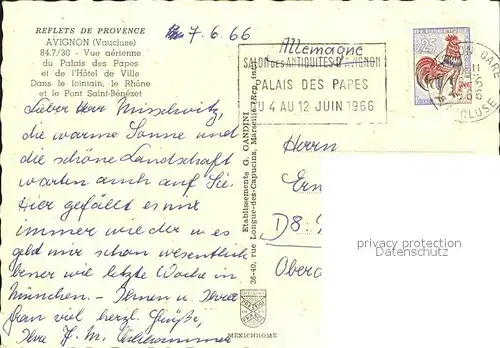 REFLETS DE PROVENCE
AVIGNON (Vaucluse)
84.7/30 - Vue aérienne
du Palais des Papes
et de l'Hôtel de Ville
Dans le lointain, le Rhône
et le Pont Saint-Bénézet
7.6.66
Lieber Herr
die warme Sonne und
die schöne Landschaft
warten auch auf Sie.
Hier gefällt es mir
immer wieder u es
geht mir schon wesentlich
besser wie letzte Woche in
München. - Ihnen u. Ihrer
Frau viel herzl. Grüße,
Ihre J. M.
Etablissements G. GANDINI
36-40, rue Longue-des-Capucins, Marseille
MEXICHROME
Allemagne
SALON DES ANTIQUITES D'AVIGNON
PALAIS DES PAPES
DU 4 AU 12 JUIN 1966
0,25
Herrn
D8
privacy protection
Datenschutz